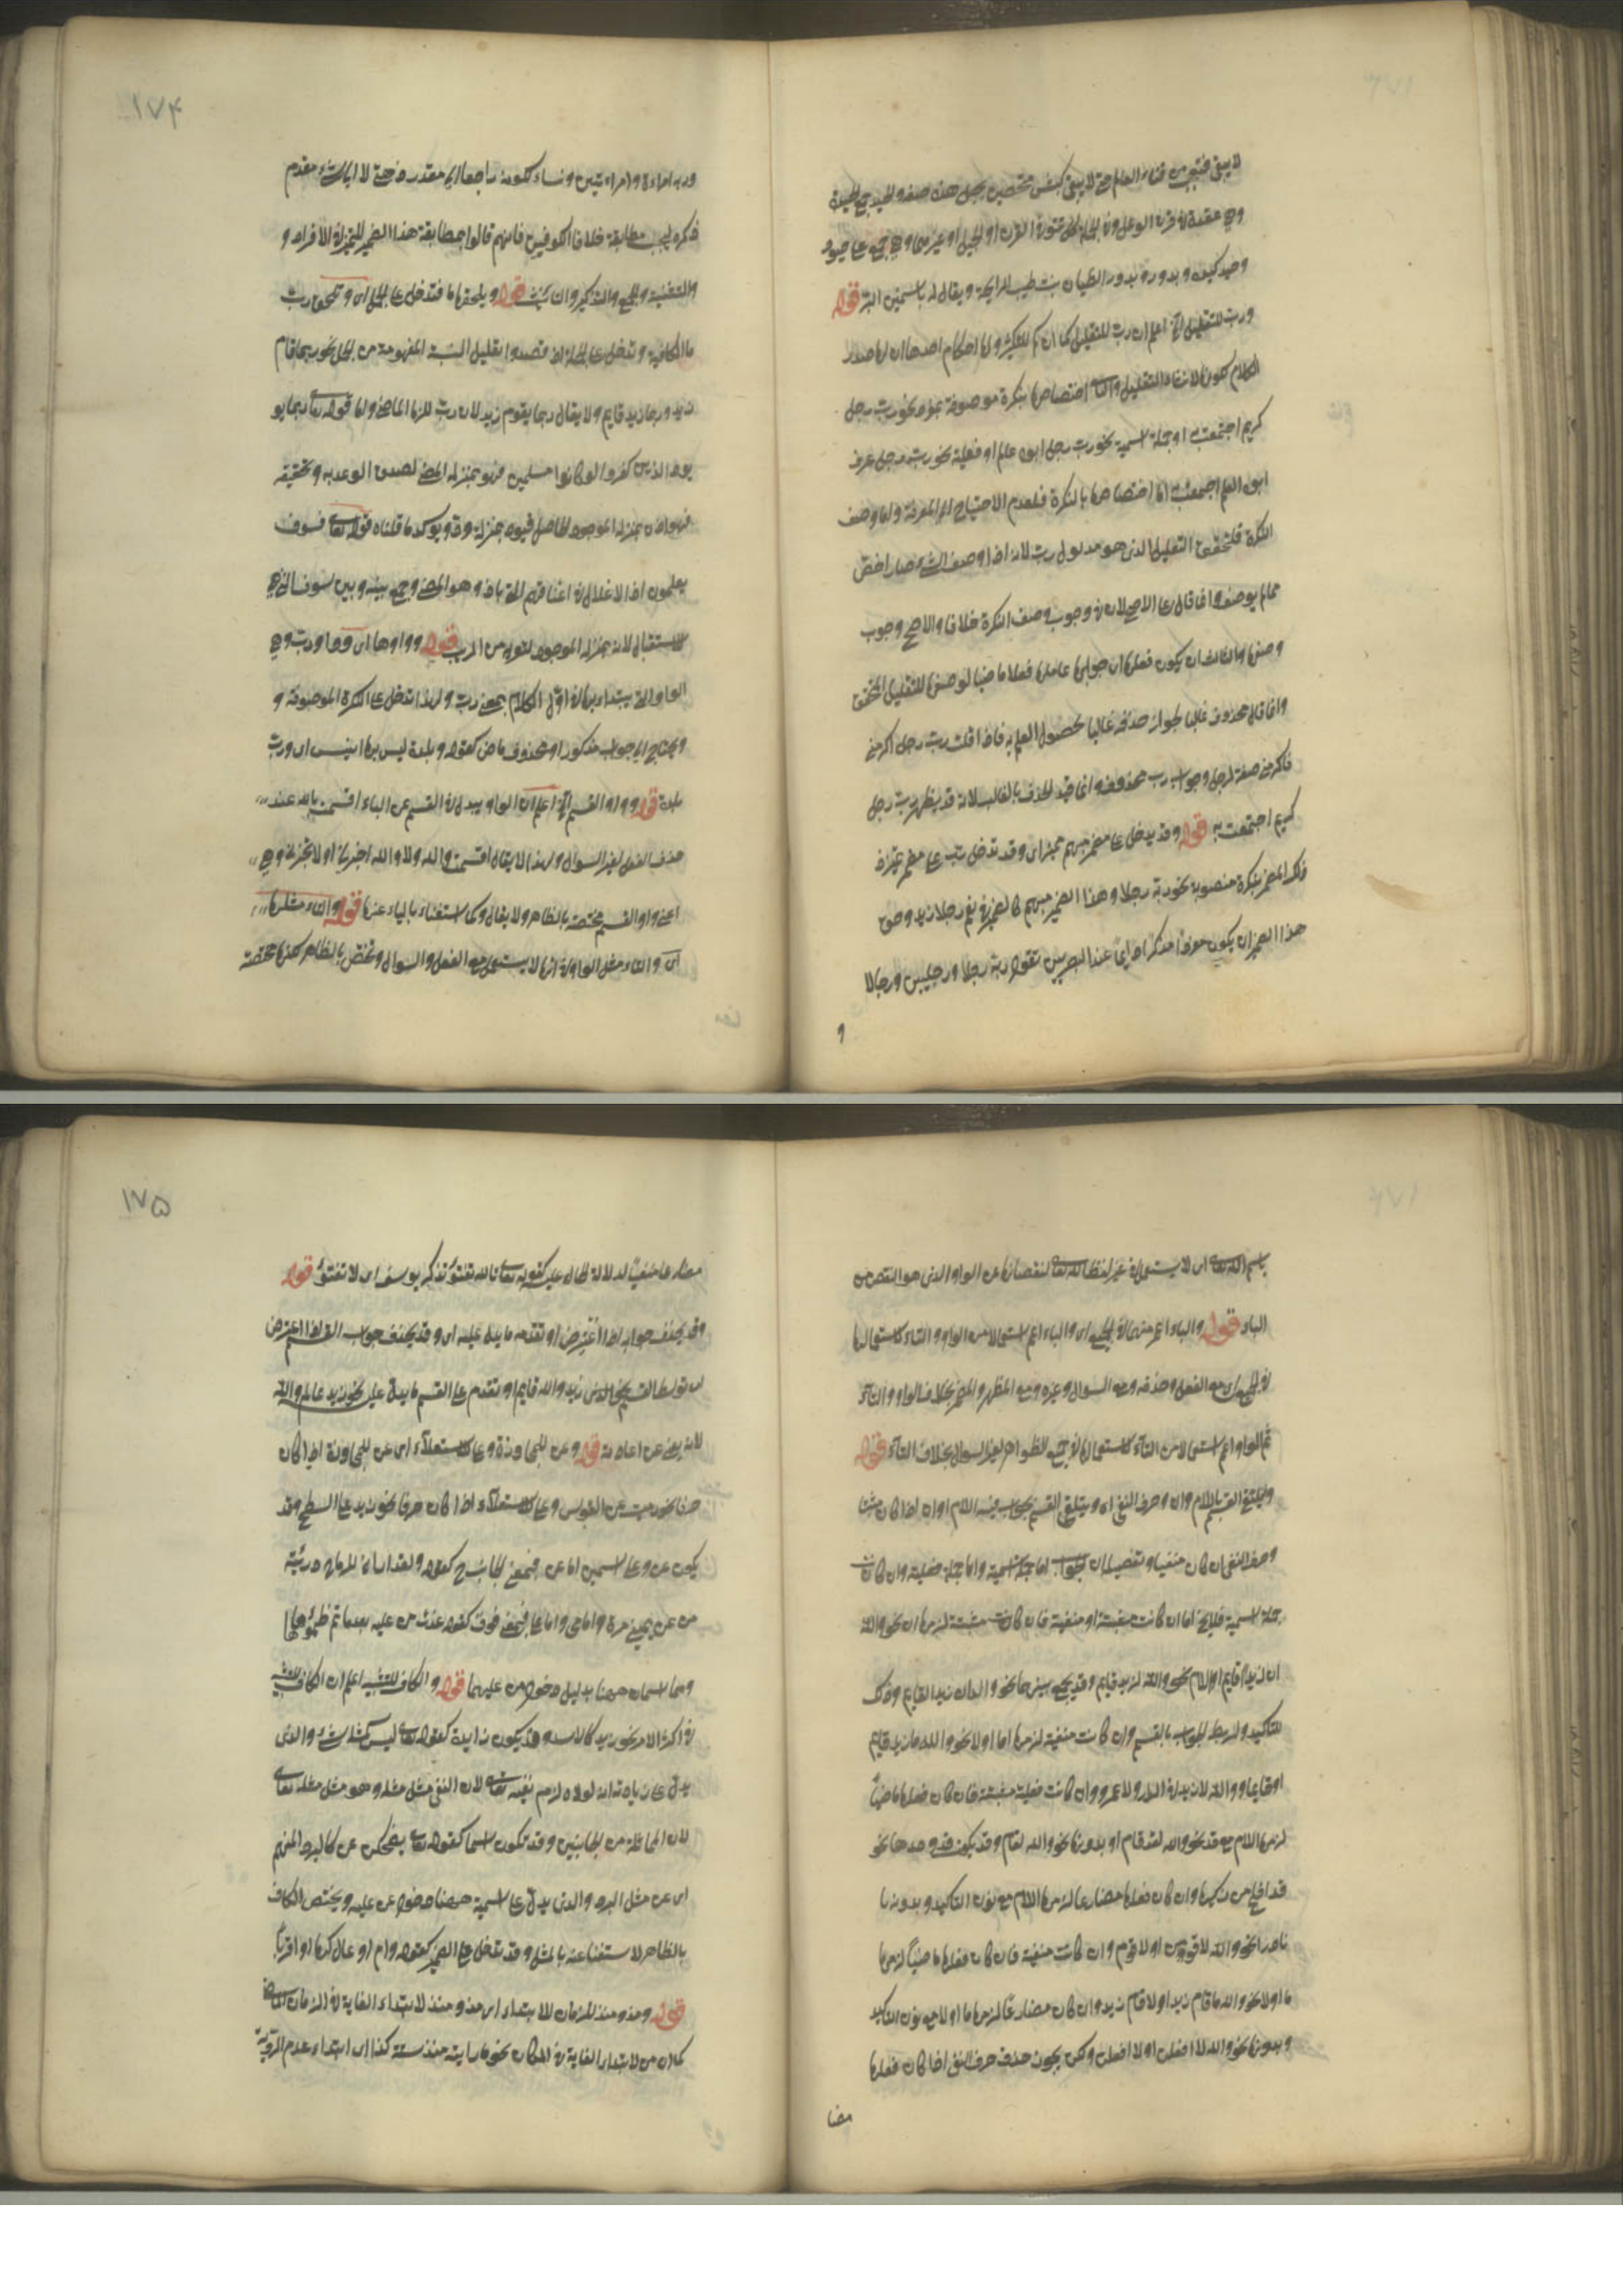 لا يبقى فتى من فتيان العالم حتى لا يبقى
وفي عقدة في قرن الوعل
ورب للتقليل الخ اعلم ان رب للتقليل كما ان كم للتكثير ولها احكام احدها ان لها صدر
الكلام لكونها لانشاء التقليل والثاني اختصاصها بنكرة موصوفة بمفرد نحو رب رجل
كريم اجتمعت به او بجملة اسمية نحو رب رجل ابوه عالم او فعلية نحو رب رجل عرف
ابوه العلم اجتمعت به اما اختصاصها بالنكرة فلعدم الاحتياج الى المعرفة واما وصف
النكرة فلتحقق التقليل الذي هو مدلول رب لانه اذا وصف الشيء صار اخص
مما لم يوصف وانما قال على الاصح لان في وجوب وصف النكرة خلافا والاصح وجوب
وصفها والثالث ان يكون فعلها اي جوابها عاملها فعلا ماضيا لوضعها للتقليل المحقق
وانما قال محذوف غالبا لجواز حذفه غالبا لحصول العلم به فاذا قلت رب رجل اكرمني
فاكرمني صفة لرجل وجواب رب محذوف وانما قيد الحذف بالغالب لانه قد يظهر نحو رب رجل
كريم اجتمعت به قوله وقد يدخل على مضمر مبهم مميز اي وقد تدخل رب على مضمر مميز
ذلك المضمر بنكرة منصوبة نحو ربه رجلا وهذا الضمير مبهم كالضمير في نعم رجلا زيد وحق
هذا الضمير ان يكون مفردا مذكرا دائما عند البصريين تقول ربه رجلا ورجلين ورجالا
و
١٧٤
وربه امراة وامراتين ونساء لكونه راجعا الى مقدر ذهني لا الى شيء مقدم
ذكره ليجب مطابقته خلافا للكوفيين فانهم قالوا بمطابقة هذا الضمير للتمييز في الافراد و
والتثنية والجمع والتذكير والتانيث قوله ويلحقها ما فتدخل على الجمل اي وتلحق رب
ما الكافية وتدخل على الجملة اذا قصدوا تقليل النسبة المفهومة من الجمل نحو ربما قام
زيد وربما زيد قايم ولا يقال ربما يقوم زيد لان رب للزمان الماضي واما قوله تعالى ربما يو
يود الذين كفروا لو كانوا مسلمين فهو بمنزلة الماضي لصدق الوعد به وتحقيقه
فهو اذن بمنزلة الموجود الحاصل فيود بمنزلة ود ويؤكد ما قلناه قوله تعالى فسوف
يعلمون اذ الاغلال في اعناقهم اتى باذ وهو الماضي وجمع بينه وبين سوف التي هي
للاستقبال لانه بمنزلة الموجود قوله وواوها اي وواو رب وهي
الواو التي يبتدا بها في اول الكلام بمعنى رب ولهذا تدخل على النكرة الموصوفة و
ويحتاج الى جواب مذكور او محذوف ماض كقوله وبلدة ليس بها انيس اي ورب
بلدة قوله وواو القسم الخ اعلم ان الواو يبدل في القسم عن الباء في اقسمت بالله عند
حذف الفعل لغير السوال ولهذا لا يقال اقسمت والله ولا والله اخبرني او لا تخبرني وهي
اعني واو القسم مختصة بالظاهر ولا يقال وك استغناء بالباء عنها قوله والتاء مثلها
اي والتاء مثل الواو في انها لا يستعمل مع الفعل والسوال وتختص بالظاهر لكنها مختصة
باسم الله تعالى اي لا يستعمل في غير لفظ الله تعالى لنقصانها عن الواو الذي هو انقص من
الباء قوله والباء اعم منهما في الجميع اي والباء اعم استعمالا من الواو والتاء لاستعمالها
في الجميع اي مع الفعل وحذفه ومع السوال وغيره ومع المظهر والمضمر بخلاف الواو والتاء
ثم الواو اعم استعمالا من التاء لاستعمالها في جميع الظواهر لغير السوال بخلاف التاء قوله
ويتلقى القسم باللام وان وحرف النفي اي ويتلقى القسم بجواب فيه اللام او ان اذا كان مثبتا
وحرف النفي ان كان منفيا وتفصيله ان جوابه اما جملة اسمية واما جملة فعلية وان كانت
جملة اسمية فلا يخ اما ان كانت مثبتة او منفية فان كانت مثبتة لزمها ان نحو والله
ان زيدا قايم او اللام نحو والله لزيد قايم وقد يجمع بينهما نحو والله ان زيدا لقايم وذلك
للتاكيد ولربط الجواب بالقسم وان كانت منفية لزمها اما او لا نحو والله ما زيد قايم
او قايما ووالله لا زيد في الدار ولا عمرو وان كانت فعلية مثبتة فان كان فعلها ماضيا
لزمها اللام مع قد نحو والله لقد قام او بدونها نحو والله لقام وقد يكون قد وحدها نحو
قد افلح من زكيها وان كان فعلها مضارعا لزمها اللام مع نون التاكيد وبدونها
نادرا نحو والله لاقومن او لاقوم وان كانت منفية فان كان فعلها ماضيا لزمها
ما او لا نحو والله ما قام زيد او لا قام زيد وان كان مضارعا لزمها ما او لا مع نون التاكيد
وبدونها نحو والله لا افعلن او لا افعل ولكن يجوز حذف حرف النفي اذا كان فعلها
مضا
١٧٥
مضارعا منفيا لدلالة الحال عليه كقوله تعالى تالله تفتؤ تذكر يوسف اي لا تفتؤ قوله
وقد يحذف جوابه اذا اعترض او تقدمه ما يدل عليه اي وقد يحذف جواب القسم اذا اعترض
اي توسط القسم نحو زيد والله قايم او تقدم على القسم ما يدل عليه نحو زيد عالم والله
لانه يغني عن اعادته قوله وعن للمجاوزة وعلى للاستعلاء اي عن للمجاوزة اذا كان
حرفا نحو رميت عن القوس وعلى للاستعلاء اذا كان حرفا نحو زيد على السطح وقد
يكون عن وعلى اسمين اما عن فبمعنى الجانب كقوله ولقد اراني للرماح دريئة
من عن يميني مرة وامامي واما على فبمعنى فوق كقوله غدت من عليه بعد ما تم ظمؤها
وهما اسمان ههنا بدليل دخول من عليهما قوله والكاف للتشبيه اعلم ان الكاف للتشبيه
في اكثر الامر نحو زيد كالاسد وقد يكون زايدة كقوله تعالى ليس كمثله شيء والذي
يدل على زيادته انه لولاه لزم نفيه تعالى لان النفي مثل مثله وهو مثل مثله تعالى
لان المماثلة من الجانبين وقد تكون اسما كقوله يضحكن عن كالبرد المنهم
اي عن مثل البرد والذي يدل على اسميته ههنا دخول عن عليه ويختص الكاف
بالظاهر لاستغنا عنه بالمثل وقد تدخل على الضمير كقوله وام اوعال كها او اقربا
قوله ومذ ومنذ للزمان للابتداء اي مذ ومنذ لابتداء الغاية في الزمان الماضي
كما ان من لابتداء الغاية في المكان نحو ما رايته منذ سنة كذا اي ابتداء عدم الرؤية